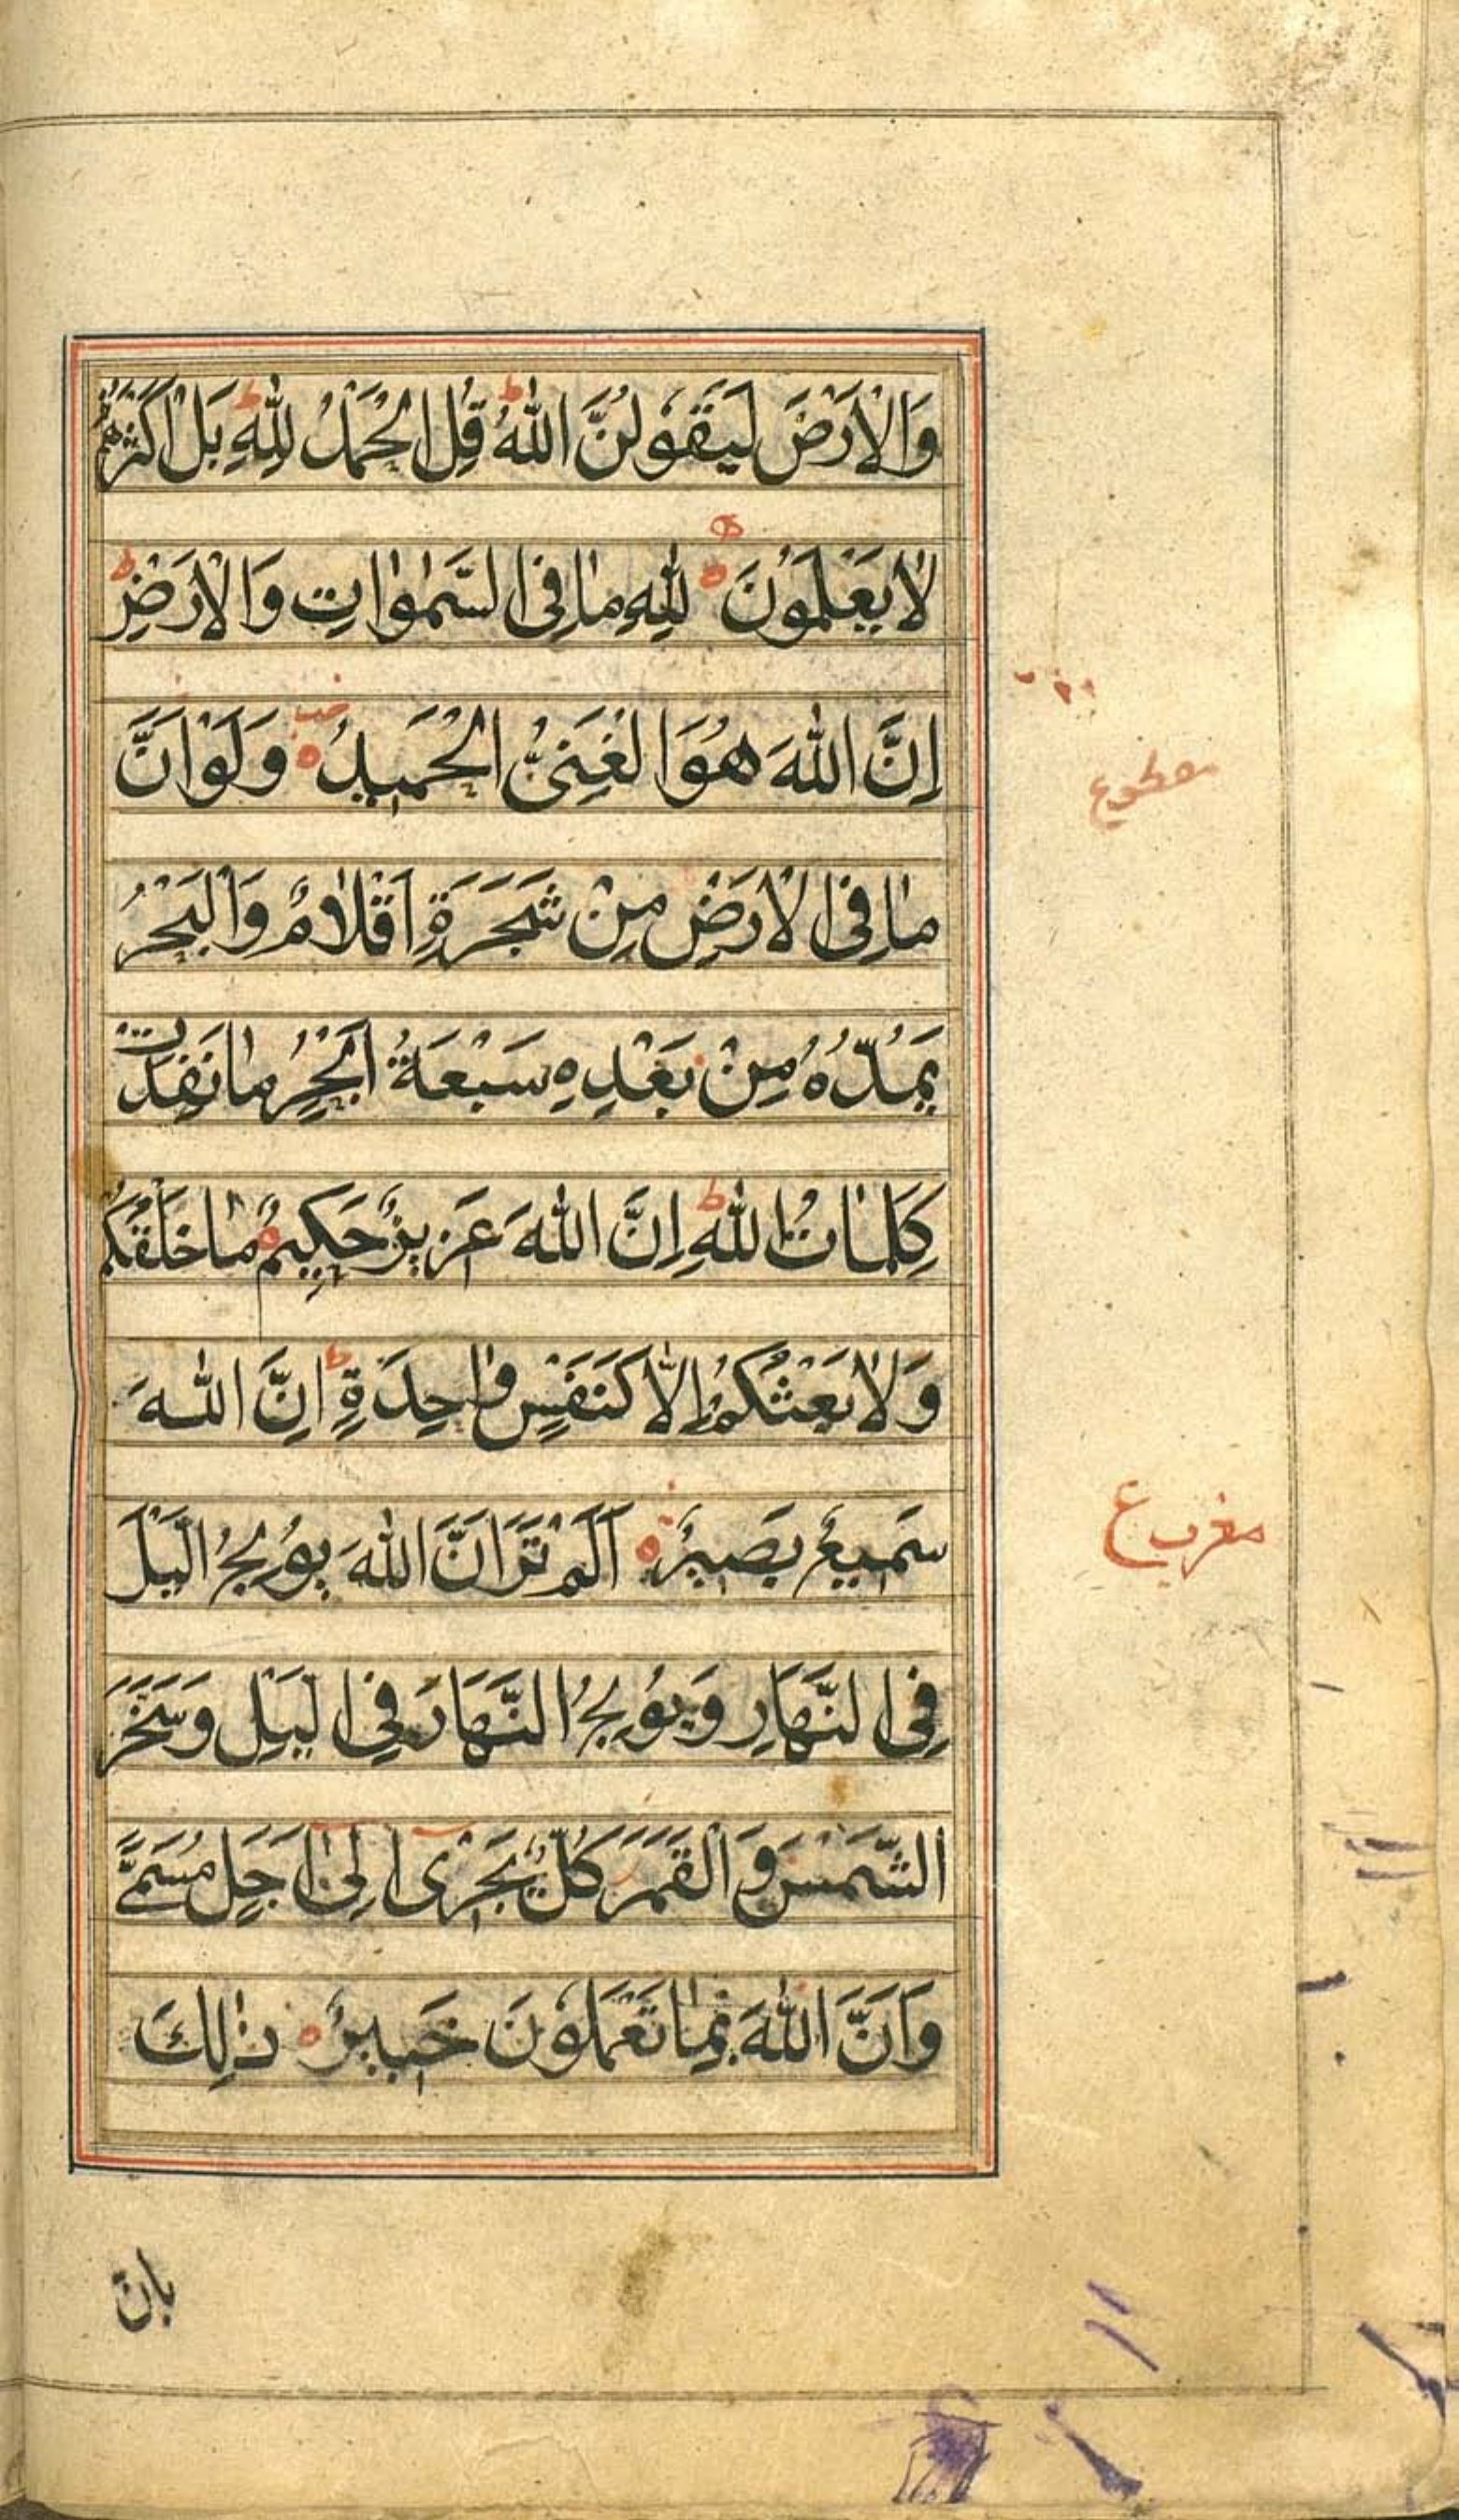 وَالْاَرْضَ لَيَقُوْلُنَّ اللّٰهُ ط قُلِ الْحَمْدُ لِلّٰهِ ط بَلْ اَكْثَرُهُمْ
لَا يَعْلَمُوْنَ ه لِلّٰهِ مَا فِى السَّمٰوَاتِ وَالْاَرْضِ ط
اِنَّ اللّٰهَ هُوَ الْغَنِىُّ الْحَمِيْدُ ه وَلَوْ اَنَّ
مَا فِى الْاَرْضِ مِنْ شَجَرَةٍ اَقْلَامٌ وَالْبَحْرُ
يَمُدُّهُ مِنْ بَعْدِهِ سَبْعَةُ اَبْحُرٍ مَا نَفِدَتْ
كَلِمَاتُ اللّٰهِ ط اِنَّ اللّٰهَ عَزِيْزٌ حَكِيْمٌ ه مَا خَلْقُكُمْ
وَلَا بَعْثُكُمْ اِلَّا كَنَفْسٍ وَاحِدَةٍ ط اِنَّ اللّٰهَ
سَمِيْعٌ بَصِيْرٌ ه اَلَمْ تَرَ اَنَّ اللّٰهَ يُوْلِجُ الَّيْلَ
فِى النَّهَارِ وَيُوْلِجُ النَّهَارَ فِى الَّيْلِ وَسَخَّرَ
الشَّمْسَ وَالْقَمَرَ كُلٌّ يَجْرِىْ اِلٰى اَجَلٍ مُسَمًّى
وَاَنَّ اللّٰهَ بِمَا تَعْمَلُوْنَ خَبِيْرٌ ه ذٰلِكَ
مقطوع
مغرب ع
بان